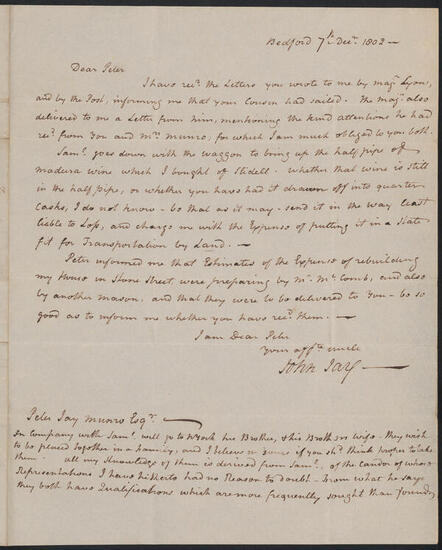 Bedford 7th Decr. 1802 —
Dear Peter
I have recd. the Letters you wrote to me by majr Lyon,
and by the Post, informing me that your Cousin had sailed. The majr. also
delivered to me a Letter from him, mentioning the kind attentions he had
recd. from You and Mrs. Munro, for which I am much obliged to you both.
Saml. goes down with the waggon to bring up the half pipe of
madura wine which I bought of Slidell. whether that wine is still
in the half pipe, or whether you have had it drawn off into quarter
Casks, I do not know — be that as it may — send it in the way least
liable to Loss, and charge me with the Expense of putting it in a State
fit for Transportation by Land. —
Peter informed me that Estimates of the Expense of rebuilding
my House in Stone Street were preparing by Mr. Mc.Comb, and also
by another mason, and that they were to be delivered to You — be so
good as to inform me whether you have recd. them. —
I am Dear Peter
Your affte. uncle
John Jay —
Peter Jay Munro Esqr.
In Company with Saml. will go to NYork his Brother, & his Brothers wife — they wish
to be placed together in a family, and I believe in yours if you shd. think proper to take
them all my Knowledge of them is derived from Saml., of the Candor of whose
Representations I have hitherto had no Reason to doubt — From what he says
they both have Qualifications which are more frequently sought than found